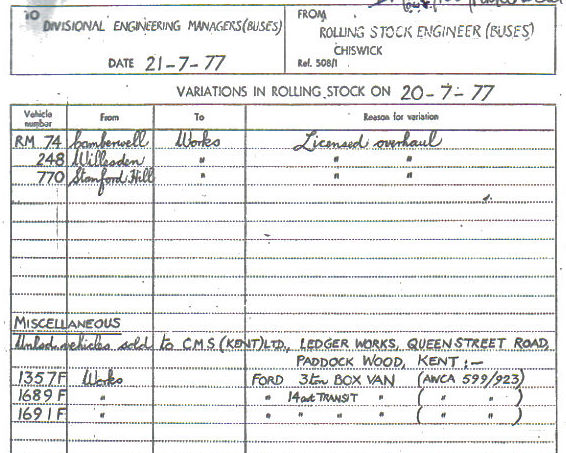 TO
DIVISIONAL ENGINEERING MANAGERS (BUSES)
DATE 21-7-77
FROM
ROLLING STOCK ENGINEER (BUSES)
CHISWICK
Ref. 508/1
VARIATIONS IN ROLLING STOCK ON 20-7-77
Vehicle number From To Reason for variation
RM 74 Camberwell Works Licensed overhaul
248 Willesden " " "
770 Stamford Hill " " "
MISCELLANEOUS
Unlicd. vehicles sold to CMS (KENT) LTD., LEDGER WORKS, QUEEN STREET ROAD,
PADDOCK WOOD, KENT :-
1357F Works FORD 3ton BOX VAN (AWCA 599/923)
1689F " " 14cwt TRANSIT " ( " " )
1691F " " " " " ( " " )